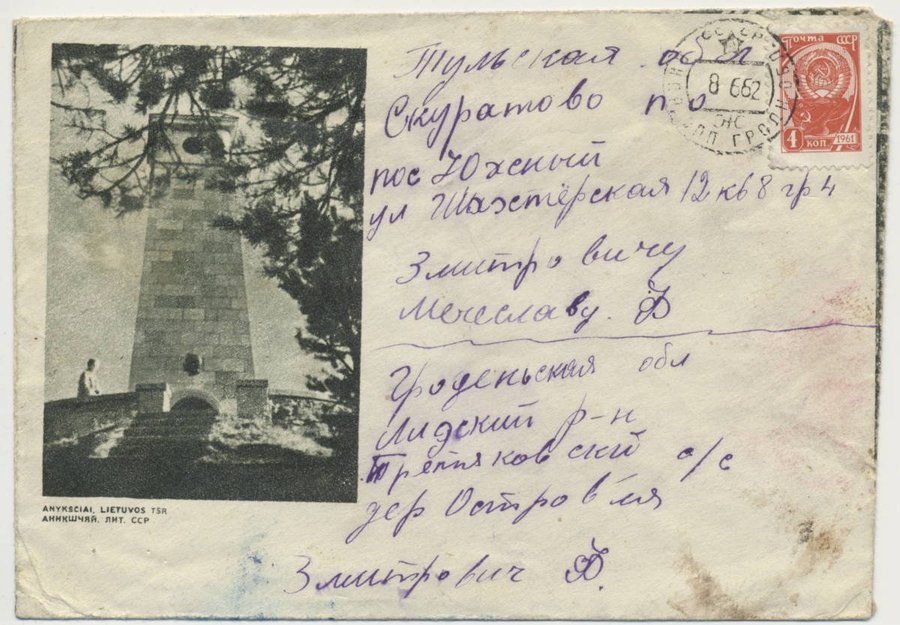 Тульская обл
Скуратово п о
пос Южный
ул Шахтёрская 12 кв 8 гр 4
Змитровичу
Мечеславу. Ф
Гроденьская обл
Лидский р-н
Третьяковский с/с
дер Островля
Змитрович Ф.
ANYKSCIAI, LIETUVOS TSR
АНИКШЧЯЙ. ЛИТ. ССР
ПОЧТА СССР
4 КОП 1961
8 6 62